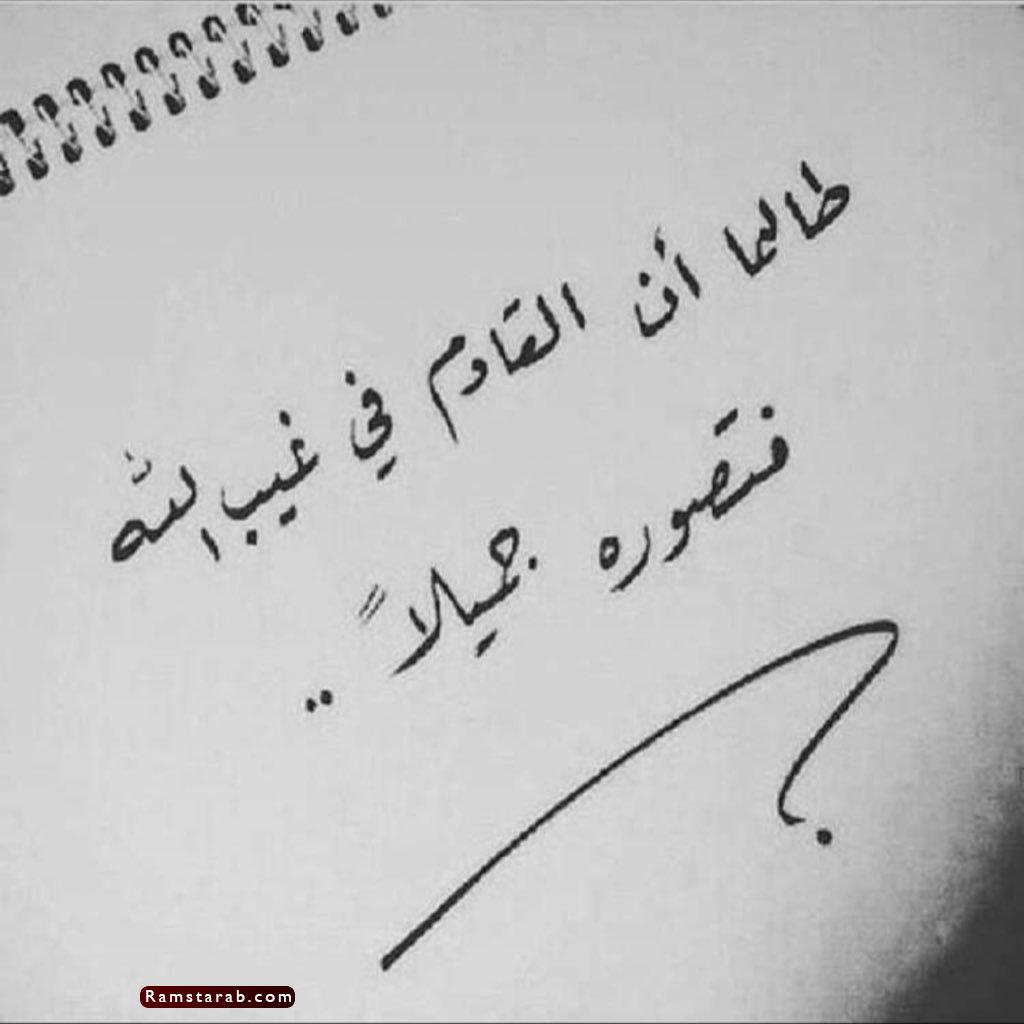 طالما أن القادم في غيب الله
فتصوره جميلاً ..
Ramstarab.com